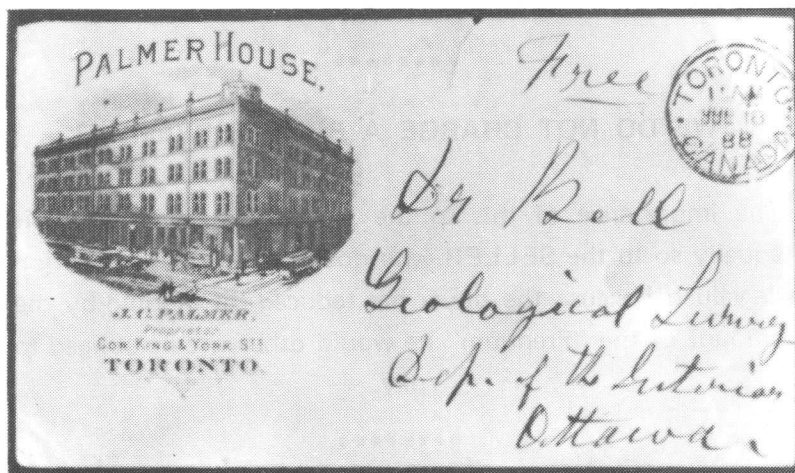 PALMER HOUSE,
J. C. PALMER,
Proprietor
COR. KING & YORK STS.
TORONTO.
Free
TORONTO
AUG 16
88
CANADA
Dr Bell
Geological Survey
Dep. of the Interior
Ottawa
DO NOT CHARGE A